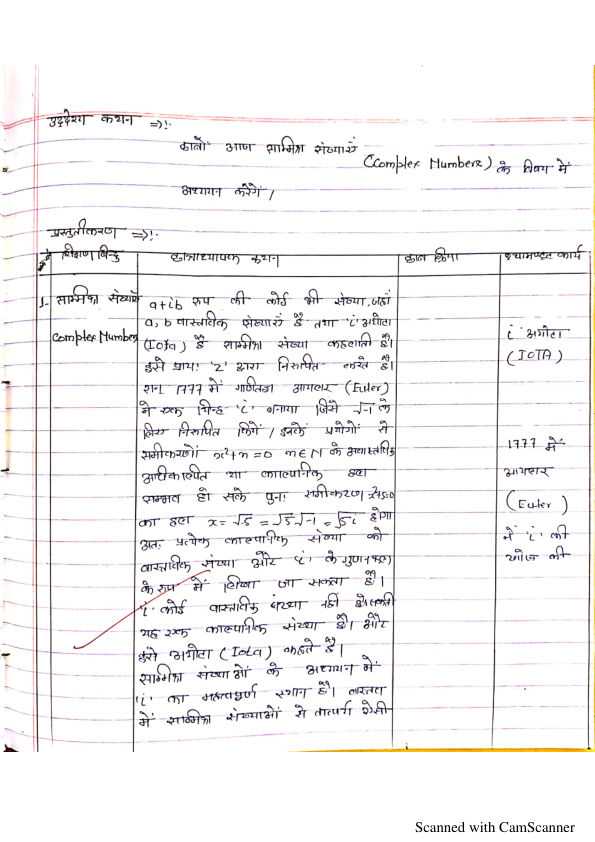 उद्देश्य कथन =>:-
छात्रों आज सम्मिश्र संख्याएँ (Complex Numbers) के विषय में
अध्ययन करेगें /
प्रस्तुतीकरण =>:-
शिक्षण बिन्दु छात्राध्यापक कथन छात्र क्रिया श्यामपट्ट कार्य
1- सम्मिश्र संख्याएँ
Complex Number
a+ib रूप की कोई भी संख्या, जहाँ
a, b वास्तविक संख्याएँ हैं तथा 'i' अयोटा
(Iota) है सम्मिश्र संख्या कहलाती है।
इसे प्रायः 'z' द्वारा निरूपित करते है।
सन् 1777 में गणितज्ञ आयलर (Euler)
ने एक चिन्ह 'i' बनाया जिसे √-1 के
लिए निरूपित किये / इनके प्रयोगों से
समीकरणों x²+n=0 n∈N के अवास्तविक
अधिकल्पित या काल्पनिक हल
सम्भव हो सके पुनः समीकरण x²+5=0
का हल x = √-5 = √5√-1 = √5i होगा
अतः प्रत्येक काल्पनिक संख्या को
वास्तविक संख्या और 'i' के गुणनफल
के रूप में लिखा जा सकता है।
'i' कोई वास्तविक संख्या नहीं हो सकती
यह एक काल्पनिक संख्या है। और
इसे अयोटा (Iota) कहते है।
सम्मिश्र संख्याओं के अध्ययन में
'i' का महत्वपूर्ण स्थान है। वास्तव
में सम्मिश्र संख्याओं से तात्पर्य ऐसी
i अयोटा
(IOTA)
1777 में
आयलर
(Euler)
ने 'i' की
खोज की
Scanned with CamScanner